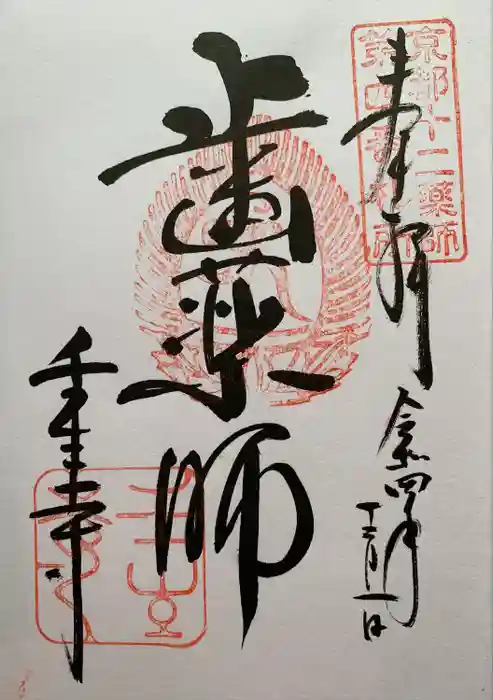 京都十二薬師
第四番札所
奉拝
令和四年
十一月一日
歯薬師
壬生寺